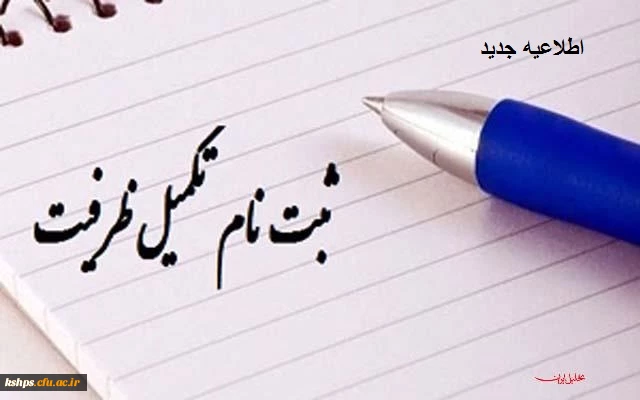 اطلاعیه جدید
ثبت نام تکمیل ظرفیت
kshps.cfu.ac.ir